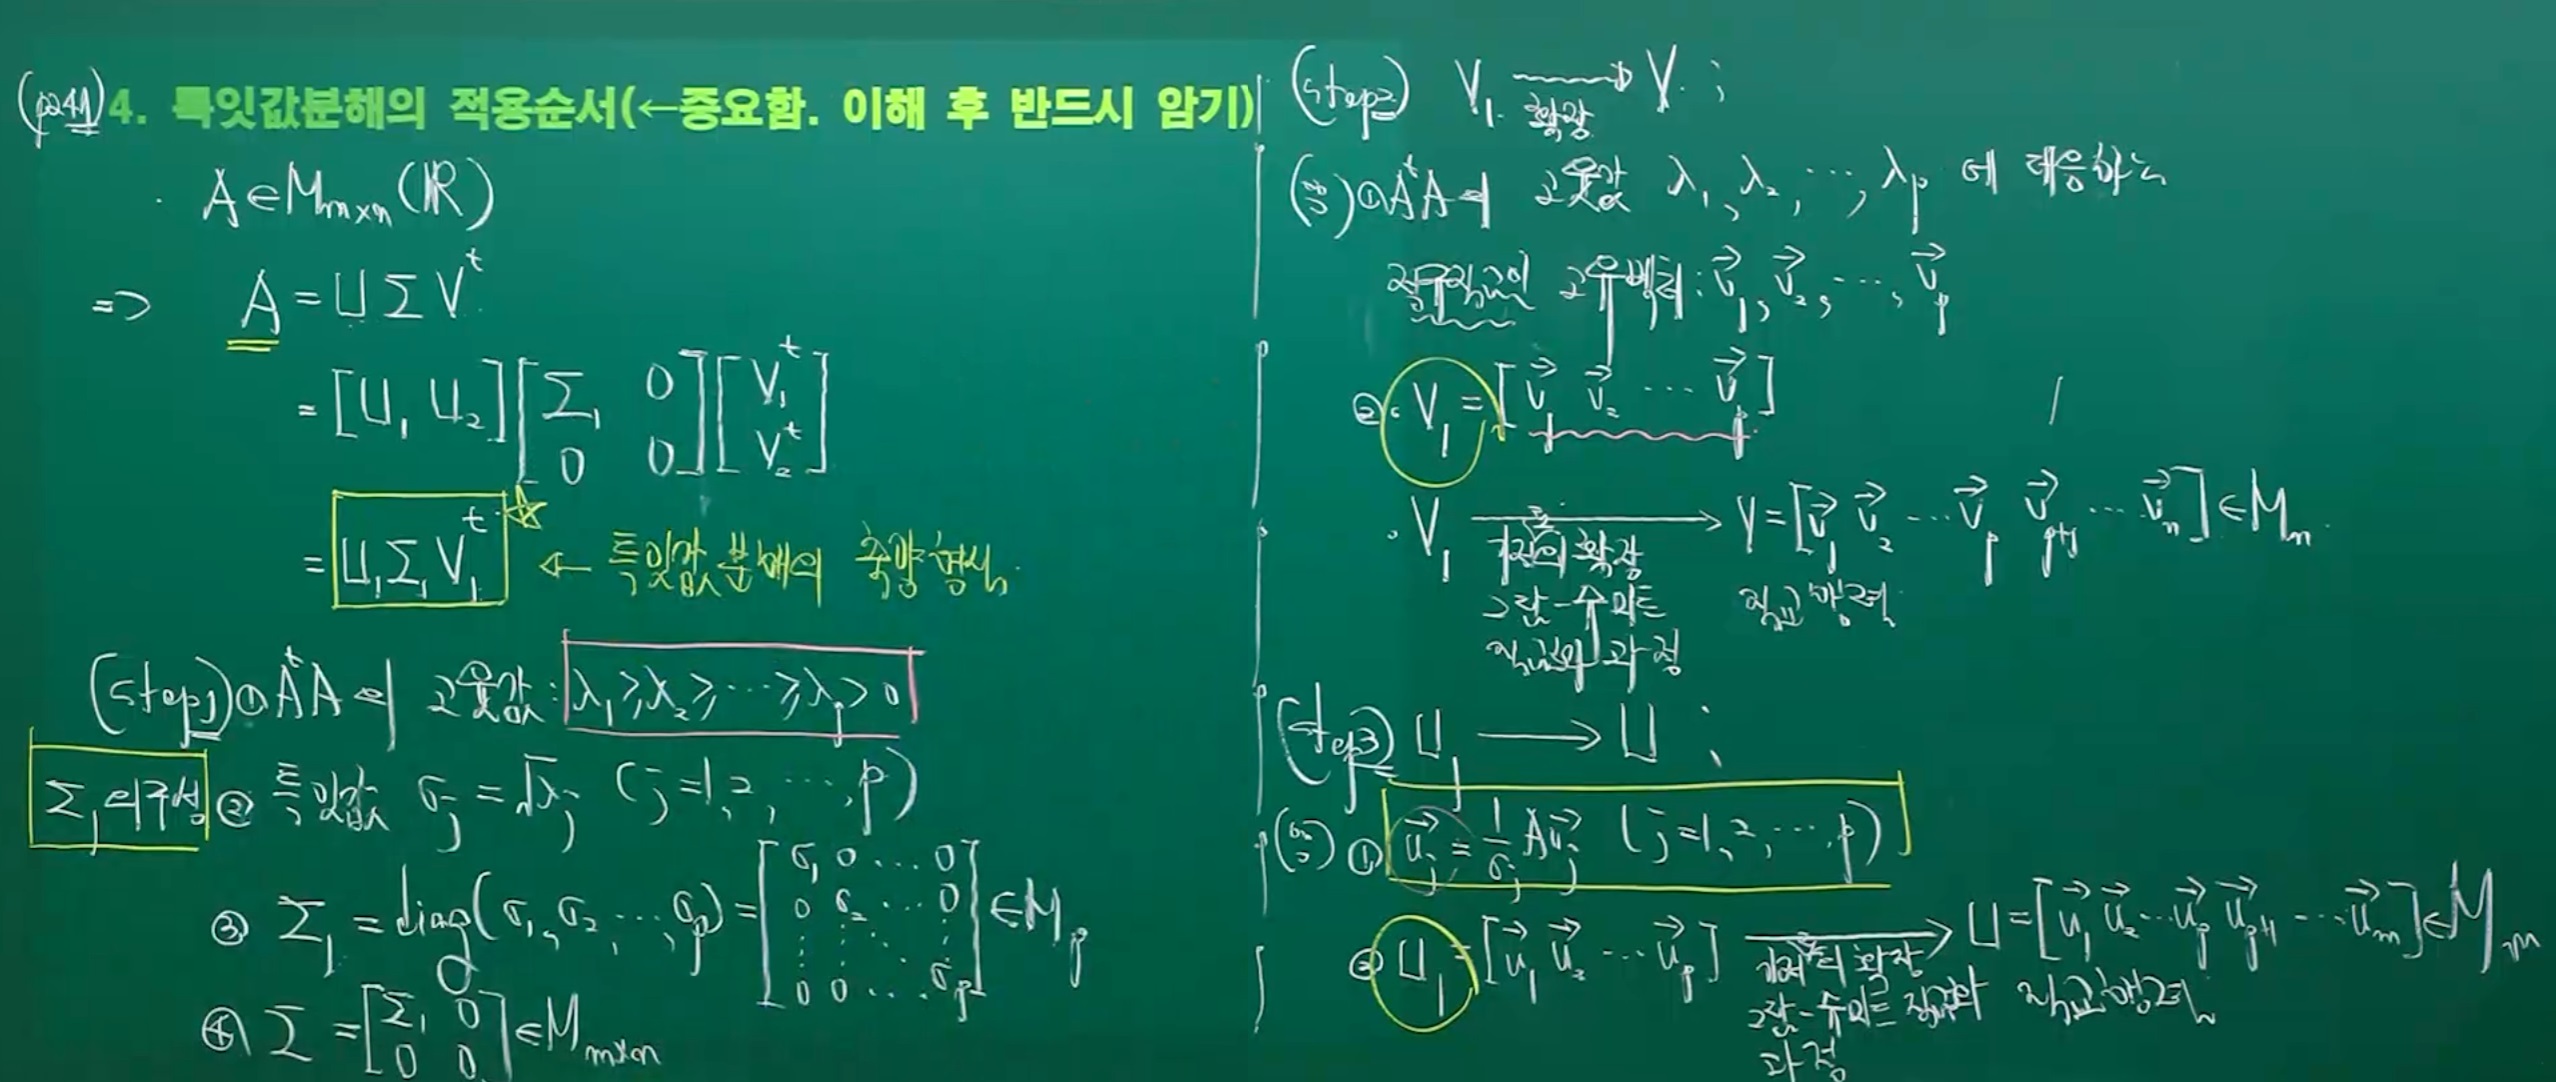 (p241) 4. 특잇값분해의 적용순서(←중요함. 이해 후 반드시 암기)
A∈M_{m×n}(ℝ)
⇒ A = U Σ V^t
= [U_1 U_2] [Σ_1 0 ; 0 0] [V_1^t ; V_2^t]
= U_1 Σ_1 V_1^t ☆ ← 특잇값분해의 축약형식
(Step1) ① A^tA의 고윳값 : λ_1 ≥ λ_2 ≥ ⋯ ≥ λ_p > 0
Σ_1의 구성 ② 특잇값 σ_j = √λ_j (j=1, 2, ⋯, p)
③ Σ_1 = diag(σ_1, σ_2, ⋯, σ_p) = [σ_1 0 ⋯ 0 ; 0 σ_2 ⋯ 0 ; ⋮ ⋮ ⋱ ⋮ ; 0 0 ⋯ σ_p] ∈ M_p
④ Σ = [Σ_1 0 ; 0 0] ∈ M_{m×n}
(Step2) V_1 → V ;
확장
① A^tA의 고윳값 λ_1, λ_2, ⋯, λ_p 에 대응하는
정규직교인 고유벡터 : v⃗_1, v⃗_2, ⋯, v⃗_p
② V_1 = [v⃗_1 v⃗_2 ⋯ v⃗_p]
V_1 → V = [v⃗_1 v⃗_2 ⋯ v⃗_p v⃗_{p+1} ⋯ v⃗_n] ∈ M_n
기저의 확장
그람-슈미트 직교행렬
직교화 과정
(Step3) U_1 → U ;
① u⃗_j = 1/σ_j Av⃗_j (j=1, 2, ⋯, p)
② U_1 = [u⃗_1 u⃗_2 ⋯ u⃗_p] → U = [u⃗_1 u⃗_2 ⋯ u⃗_p u⃗_{p+1} ⋯ u⃗_m] ∈ M_m
기저의 확장
그람-슈미트 직교화 직교행렬
과정